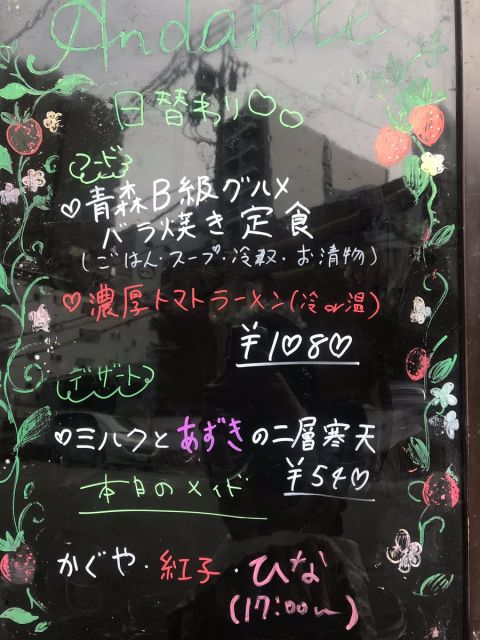 Andante
日替わり♡♡
フード
♡青森B級グルメ
バラ焼き定食
(ごはん・スープ・冷奴・お漬物)
♡濃厚トマトラーメン(冷or温)
¥1080
デザート
♡ミルクとあずきの二層寒天
¥540
本日のメイド
かぐや・紅子・ひな
(17:00〜)